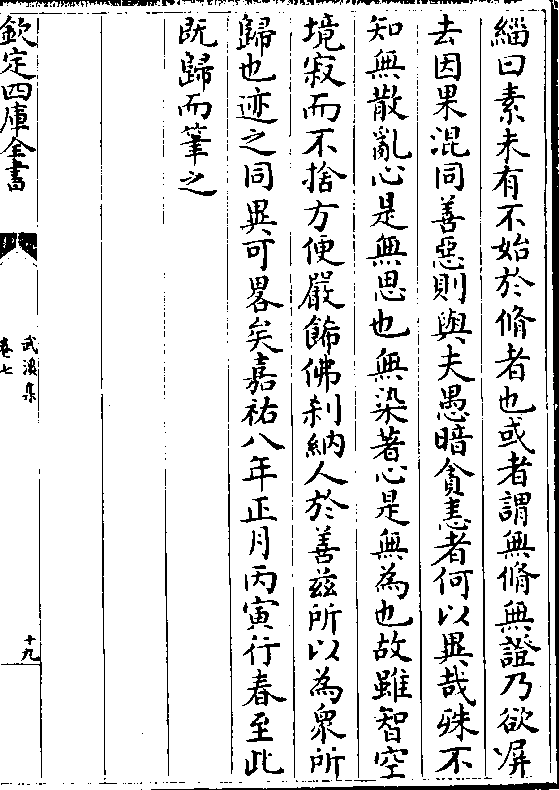 緇曰素未有不始於脩者也或者謂無脩無證乃欲屏
去因果混同善惡則與夫愚暗貪恚者何以異哉殊不
知無散亂心是無思也無染著心是無為也故雖智空
境寂而不捨方便嚴飾佛刹納人於善兹所以為衆所
歸也迹之同異可畧矣嘉祐八年正月丙寅行春至此
既歸而筆之
欽定四庫全書
武溪集
卷七
十九